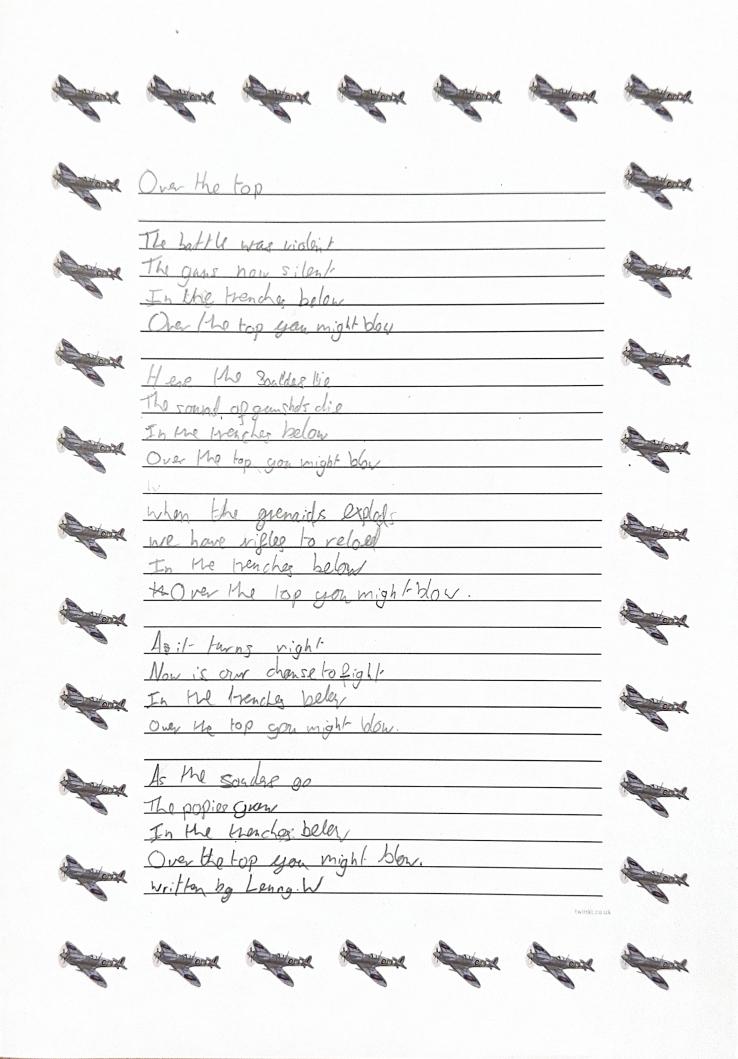 Over the top
The battle was violent
The guns now silent
In the trenches below
Over the top you might blow
Here the Soulders lie
The sound of gunshots die
In the trenches below
Over the top you might blow
when the grenaids explods
we have rifles to reload
In the trenches below
Over the top you might blow.
As it turns night
Now is our chanse to fight
In the trenches belew
Over the top you might blow.
As the souldes go
The popies grow
In the trenches belew
Over the top you might blow.
written by Lenny.W
twinkl.co.uk